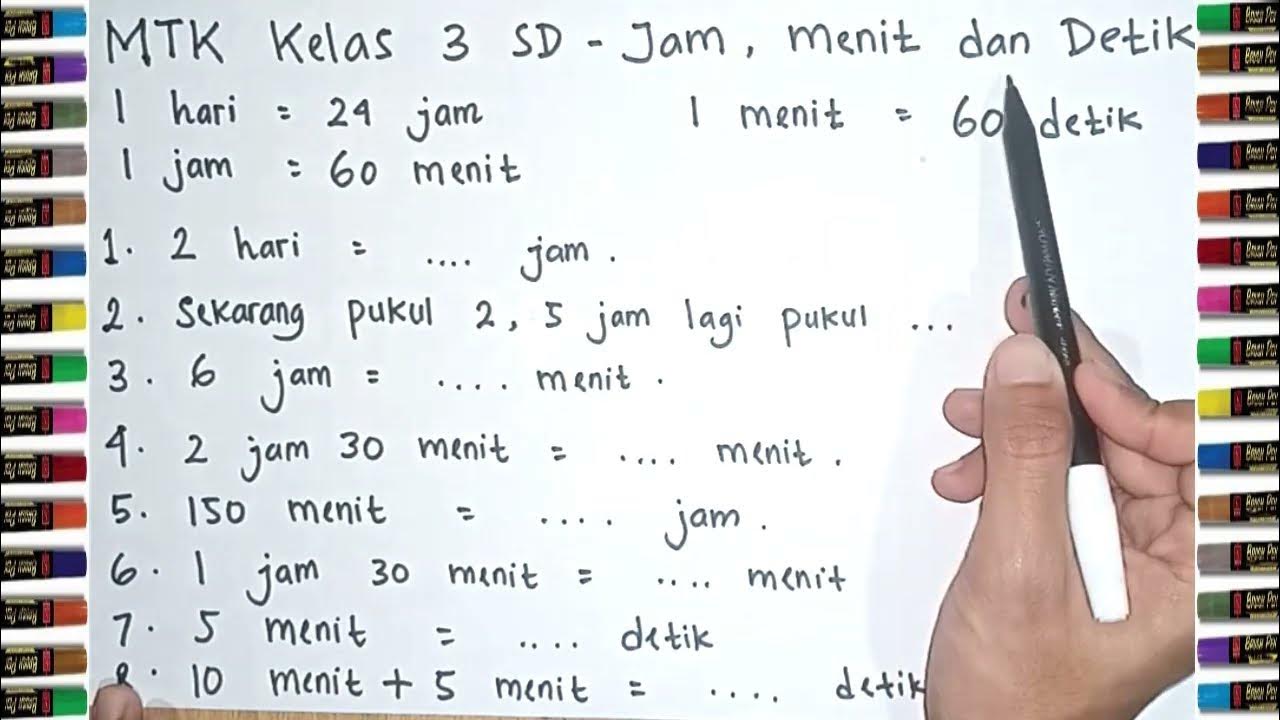 MTK Kelas 3 SD - Jam, menit dan Detik
1 hari = 24 jam 1 menit = 60 detik
1 jam = 60 menit
1. 2 hari = .... jam.
2. Sekarang pukul 2, 5 jam lagi pukul ...
3. 6 jam = .... menit.
4. 2 jam 30 menit = .... menit.
5. 150 menit = .... jam.
6. 1 jam 30 menit = .... menit
7. 5 menit = .... detik
8. 10 menit + 5 menit = .... detik